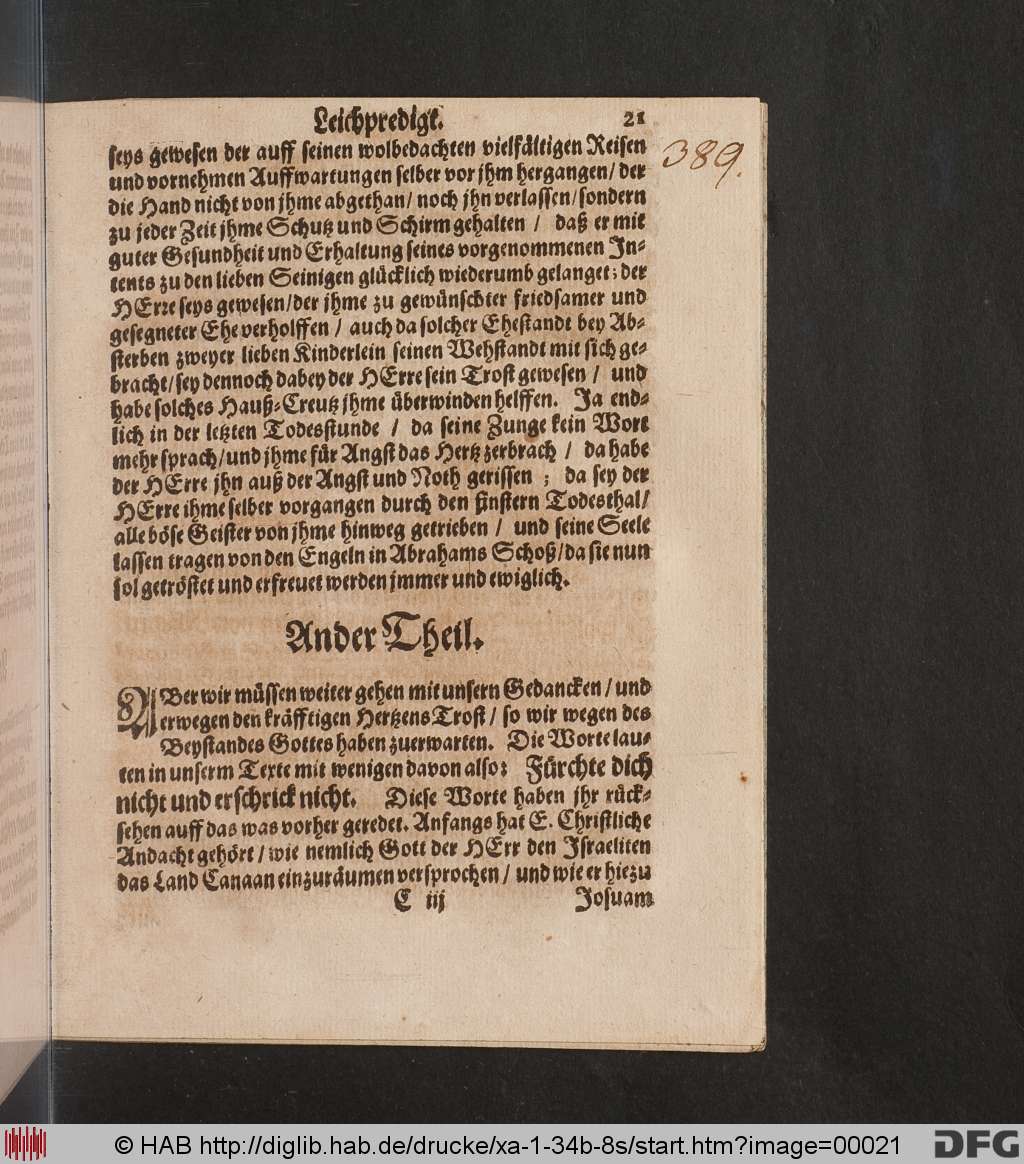 Leichpredigt. 21
389.
seys gewesen der auff seinen wolbedachten vielfältigen Reisen
und vornehmen Auffwartungen selber vor jhm hergangen / der
die Hand nicht von jhme abgethan / noch jhn verlassen / sondern
zu jeder Zeit jhme Schutz und Schirm gehalten / daß er mit
guter Gesundheit und Erhaltung seines vorgenommenen In-
tents zu den lieben Seinigen glücklich wiederumb gelanget; der
HErre seys gewesen / der jhme zu gewünschter friedsamer und
gesegneter Ehe verholffen / auch da solcher Ehestandt bey Ab-
sterben zweyer lieben Kinderlein seinen Wehstandt mit sich ge-
bracht / sey dennoch dabey der HErre sein Trost gewesen / und
habe solches Hauß-Creutz jhme überwinden helffen. Ja end-
lich in der letzten Todesstunde / da seine Zunge kein Wort
mehr sprach / und jhme für Angst das Hertz zerbrach / da habe
der HErre jhn auß der Angst und Noth gerissen ; da sey der
HErre ihme selber vorgangen durch den finstern Todesthal /
alle böse Geister von jhme hinweg getrieben / und seine Seele
lassen tragen von den Engeln in Abrahams Schoß / da sie nun
sol getröstet und erfreuet werden jmmer und ewiglich.
Ander Theil.
ABer wir müssen weiter gehen mit unsern Gedancken / und
erwegen den kräfftigen Hertzens Trost / so wir wegen des
Beystandes Gottes haben zuerwarten. Die Worte lau-
ten in unserm Texte mit wenigen davon also: Fürchte dich
nicht und erschrick nicht. Diese Worte haben jhr rück-
sehen auff das was vorher geredet. Anfangs hat E. Christliche
Andacht gehört / wie nemlich Gott der HErr den Israeliten
das Land Canaan einzuräumen versprochen / und wie er hiezu
C iij Josuam
© HAB http://diglib.hab.de/drucke/xa-1-34b-8s/start.htm?image=00021
DFG